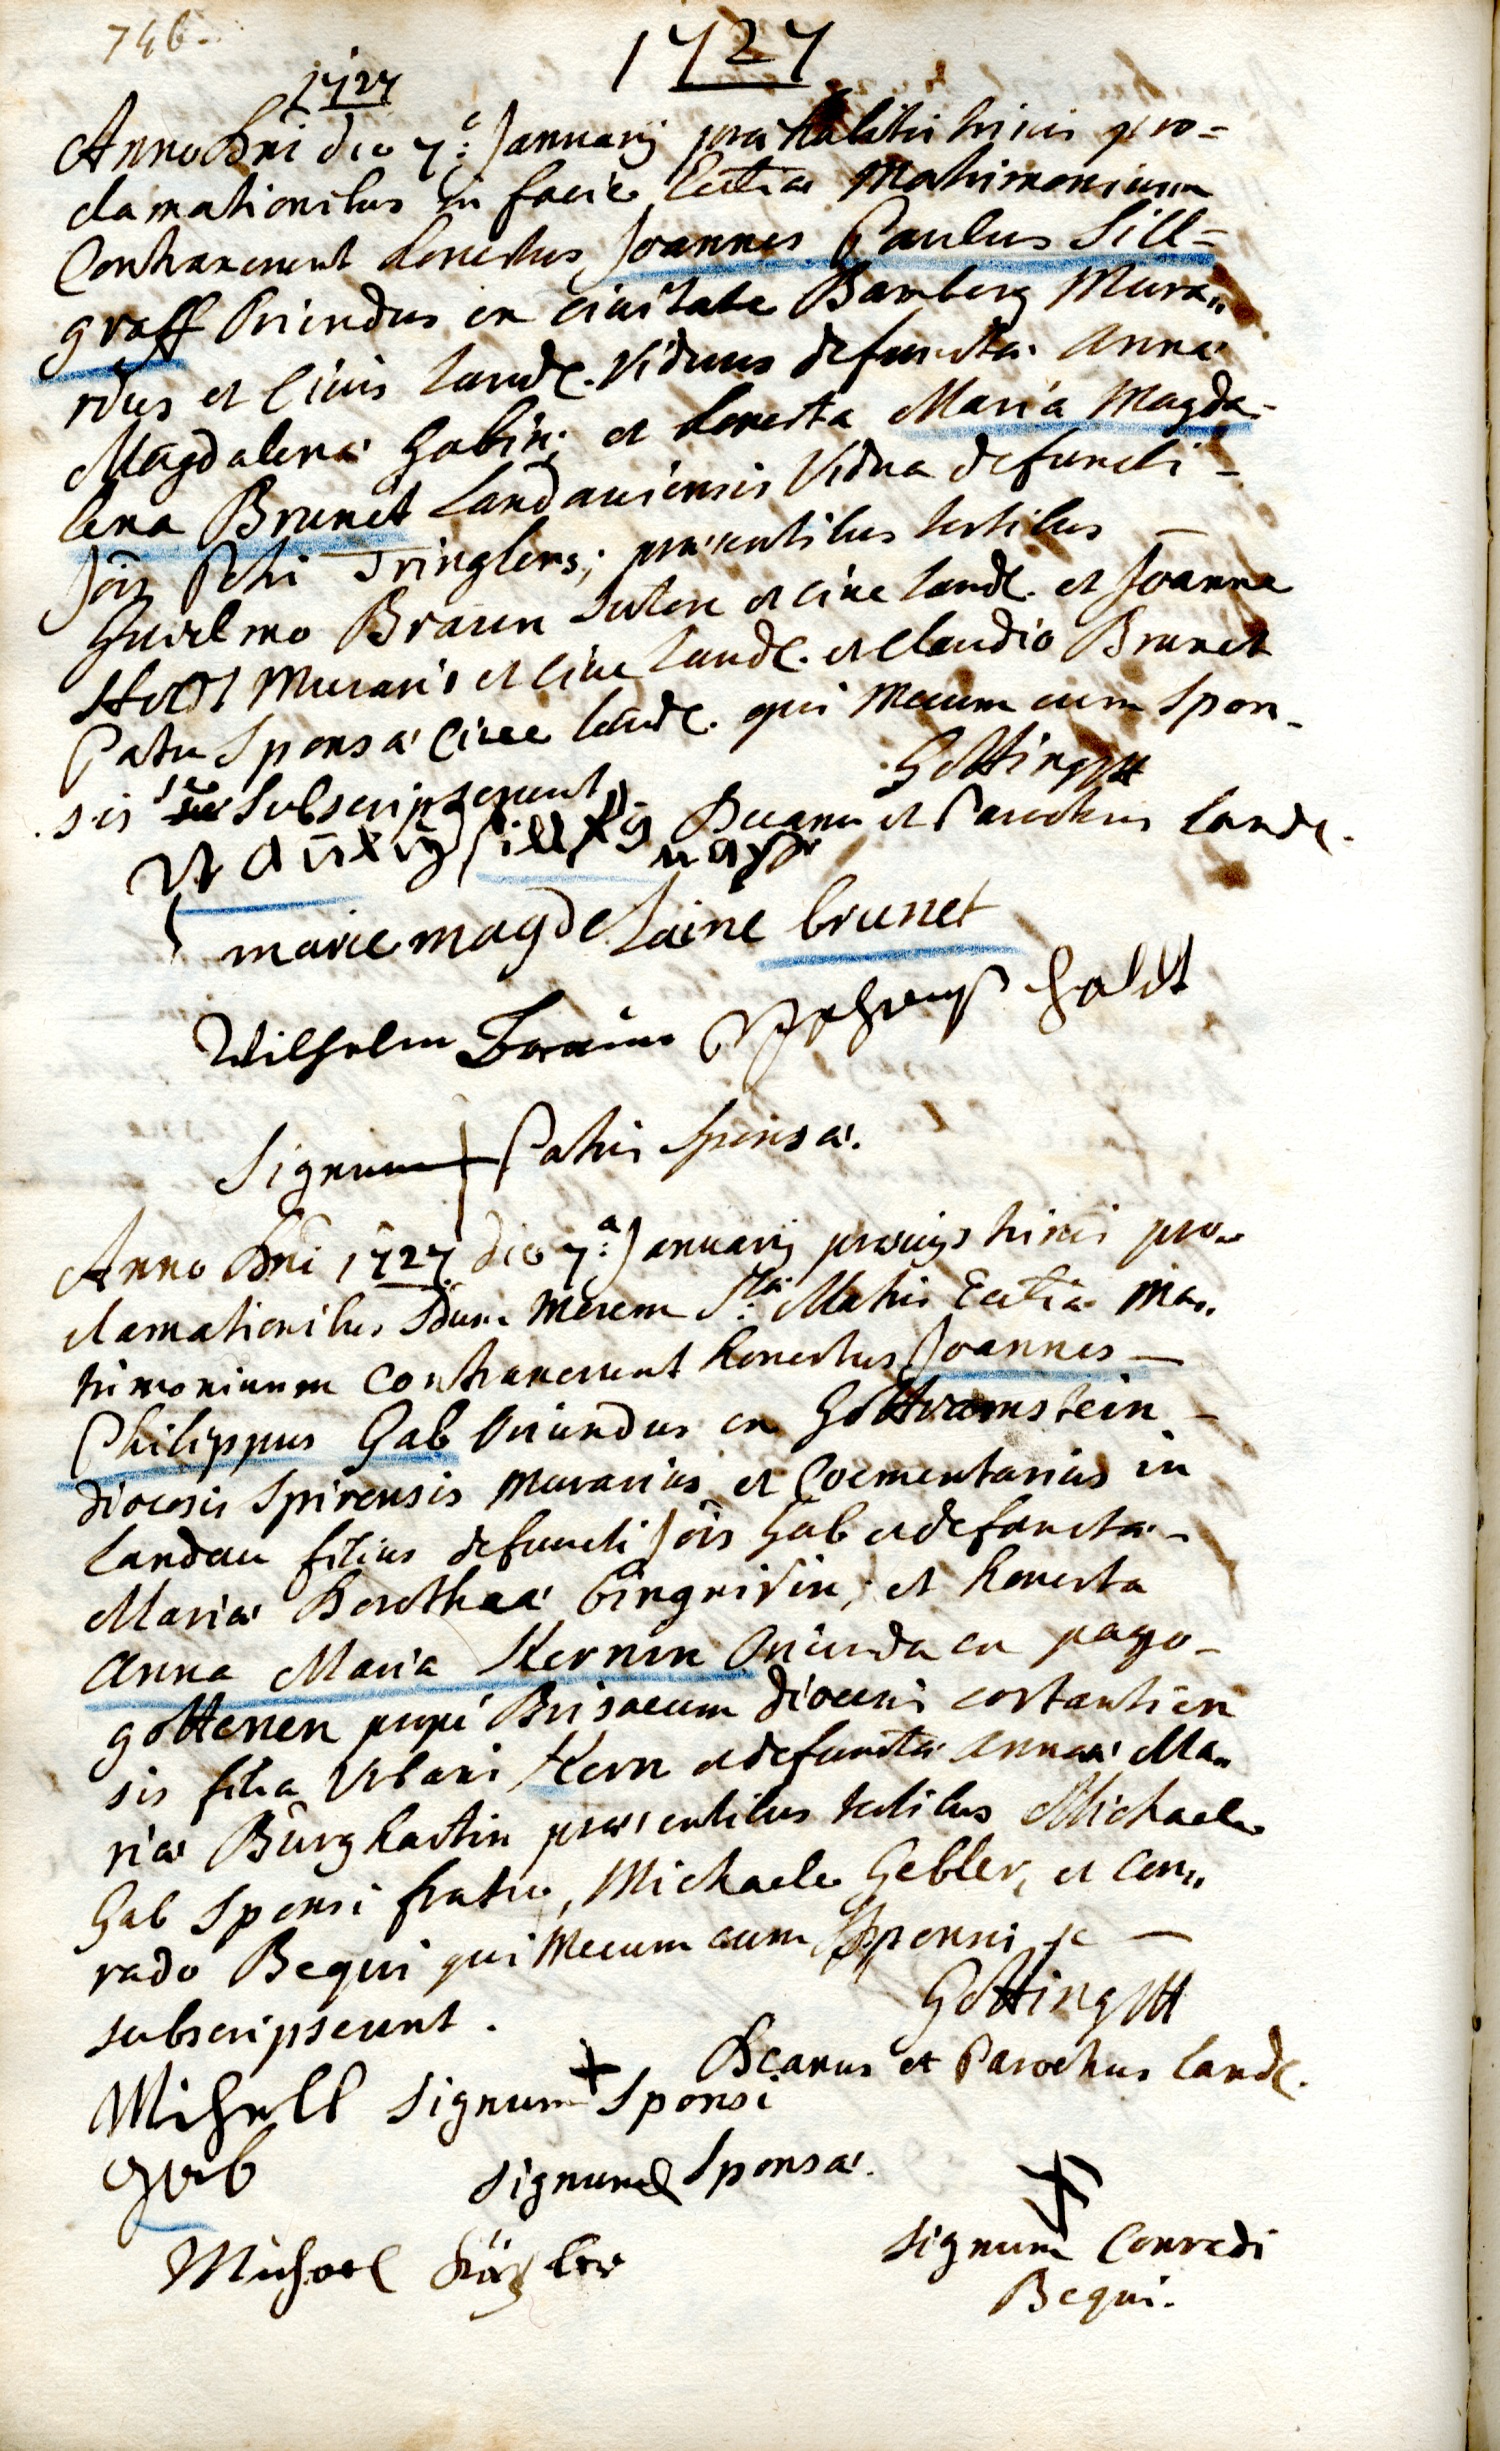 746.
1727
1727
Anno Dni die 7a: Januarij prae habitis trinis pro=
clamationibus in facie Eccliae Matrimonium
Contraxerunt honestus Joannes Paulus Sill=
graff Oriundus ex civitate Bamberg Mura„
rius et Civis Landc. Viduus defunctae Annae
Magdalenae Gabin; et honesta Maria Magda-
lena Brunet Landaviensis Vidua defuncti -
Jois Tringlers; praesentibus testibus
Guielmo Braun Sutore et cive Landc. et Joanne
Murario et Cive Landc. et Claudio Brunet
Patre Sponsae Cive Landc. qui Mecum cum Spon-
sis se subscripserunt
Göttingtt
Decanus et Parochus Landc.
marie magdelaine brunet
Wilhelm Braun holdt
Signum + Patris Sponsae.
Anno Dni 1727 die 7a: Januarij praevijs trinis pro„
clamationibus Sdum Morem Stae: Matris Eccliae Ma„
trimonium Contraxerunt honestus Joannes —
Philippus Gab Oriundus ex Gottramstein -
diocesis Spirensis Murarius et Coementarius in
Landau filius defuncti Jois Gab et defunctae -
Mariae Dorotheae ; et honesta
Anna Maria Kernin Oriunda ex pago -
gottenen prope Brisacum diocesis costantien
sis filia Urbani Kern et defunctae Annae Ma„
riae Burghartin praesentibus testibus Michaele
Gab Sponsi fratre, Michaele Gebler, et Con„
rado Bequi qui Mecum cum Sponsis se —
subscripserunt.
Göttingtt
Decanus et Parochus Landc.
Michell Signum + Sponsi
Gab
Signum Sponsae.
Michael
Signum Conradi
Bequi.